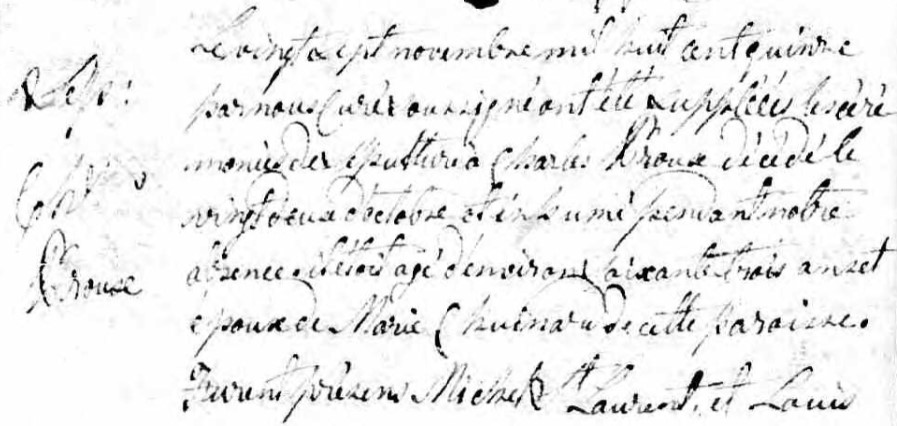 Le vingt sept novembre mil huit cent quinze
par nous Curé soussigné ont été suppléés les céré
monies de sepulture à Charles Kroux décédé le
vingt deux d'octobre et inhumé pendant notre
absence. il étoit agé d'environ soixante trois ans et
epoux de Marie Chuinard de cette paroisse.
Furent présens Michel St Laurent, et Louis
Sep:
Ch
Kroux